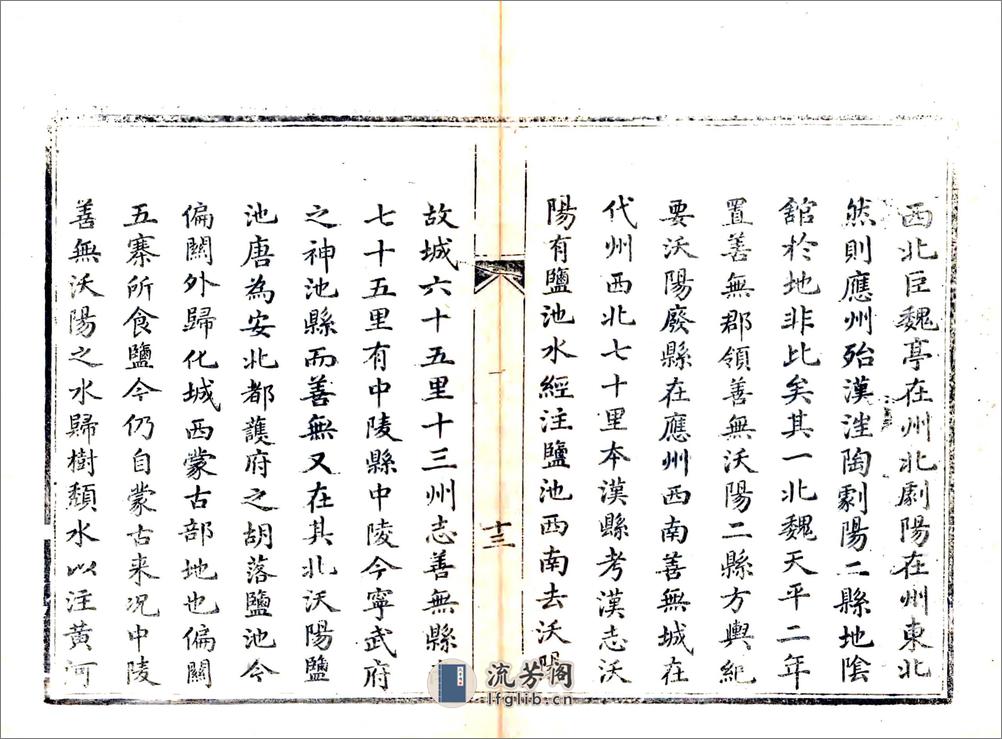 西北巨魏亭在州北劇陽在州東北
然則應州殆漢㴰陶劇陽二縣地陰
館於地非比矣其一北魏天平二年
置善無郡領善無沃陽二縣方輿紀
要沃陽廢縣在應州西南善無城在
代州西北七十里本漢縣考漢志沃
陽有鹽池水經注鹽池西南去沃陽
十三
故城六十五里十三州志善無縣
七十五里有中陵縣中陵今寧武府
之神池縣而善無又在其北沃陽鹽
池唐為安北都護府之胡落鹽池今
偏關外歸化城西蒙古部地也偏關
五寨所食鹽今仍自蒙古来况中陵
善無沃陽之水歸樹頹水以注黃河
流芳閣
lfglib.cn